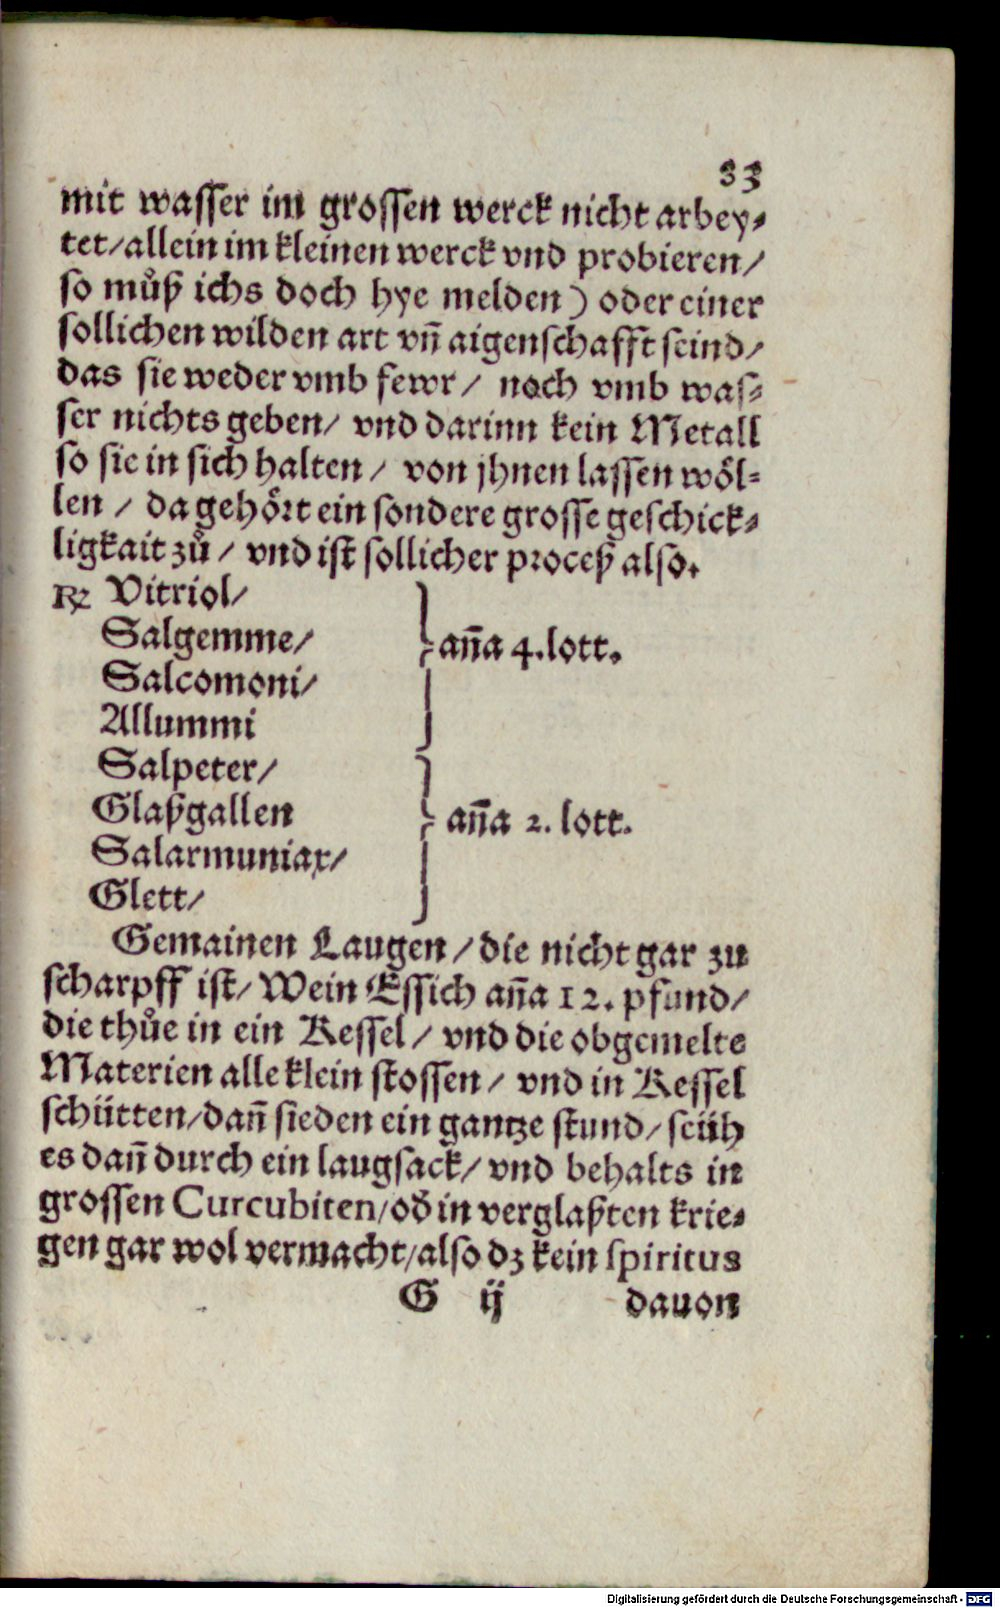 33
mit wasser im grossen werck nicht arbey⸗
tet/allein im kleinen werck vnd probieren/
so muͤß ichs doch hye melden) oder einer
sollichen wilden art vñ aigenschafft seind/
das sie weder vmb fewr/ noch vmb was⸗
ser nichts geben/ vnd darinn kein Metall
so sie in sich halten/ von jhnen lassen wöl⸗
len/ da gehört ein sondere grosse geschick⸗
ligkait zů/ vnd ist sollicher proceß also.
℞ Vitriol/
Salgemme/
Salcomoni/
anña 4.lott.
Allummi
Salpeter/
Glaßgallen
Salarmuniax/
anña 2. lott.
Glett/
Gemainen Laugen/die nicht gar zu
scharpff ist/ Wein Essich anña 12. pfund/
die thůe in ein Kessel/ vnd die obgemelte
Materien alle klein stossen/ vnd in Kessel
schütten/dañ sieden ein gantze stund/seüh
es dañ durch ein laugsack/ vnd behalts in
grossen Curcubiten/od̄ in verglaßten krie⸗
gen gar wol vermacht/also dz kein spiritus
G ij dauon
Digitalisierung gefördert durch die Deutsche Forschungsgemeinschaft - DFG